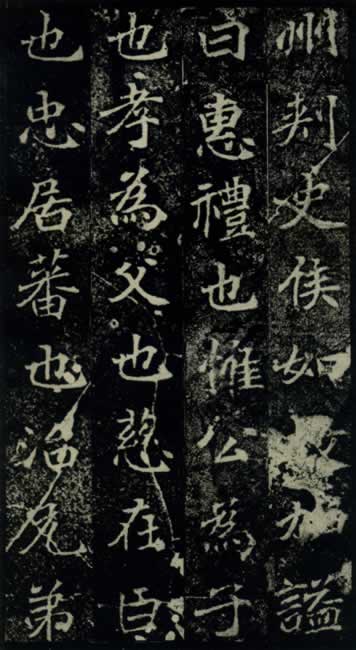 州刾史侯如故加謚
曰惠禮也惟公為子
也孝為父也慈在臣
也忠居蕃也治兄弟